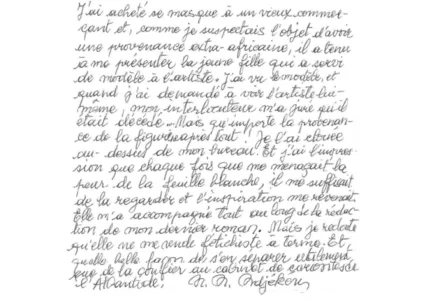 J'ai acheté ce masque à un vieux commer-
çant et, comme je suspectais l'objet d'avoir
une provenance extra-africaine, il a tenu
à me présenter la jeune fille qui a servi
de modèle à l'artiste. J'ai vu le modèle, et
quand j'ai demandé à voir l'artiste lui-
même, mon interlocuteur m'a juré qu'il
était décédé. Mais qu'importe la provenan-
ce de la figurine après tout! Je l'ai clouée
au-dessus de mon bureau. Et j'ai l'impres-
sion que chaque fois que me menaçait la
peur de la feuille blanche, il me suffisait
de la regarder et l'inspiration me revenait.
Elle m'a accompagné tout au long de la rédac-
tion de mon dernier roman. Mais je redoute
qu'elle ne me rende fétichiste à terme. Et
quelle belle façon de s'en séparer utilement
que de la confier au cabinet de curiosités de
l'Atlantide!